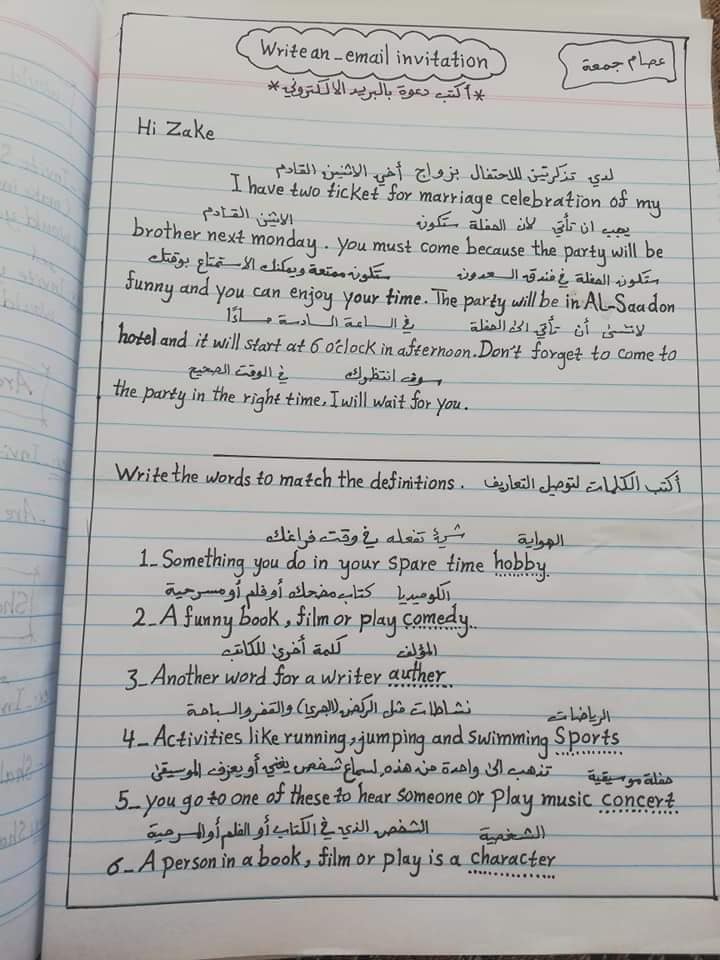 Write an_email invitation
عصام جمعة
*أكتب دعوة بالبريد الالكتروني*
Hi Zake
لدي تذكرتين للاحتفال بزواج أخي الاثنين القادم
I have two ticket for marriage celebration of my
يجب ان تأتي لأن الحفلة ستكون الاثنين القادم
brother next monday. you must come because the party will be
ستكون الحفلة في فندق السعدون ستكون ممتعة ويمكنك الاستمتاع بوقتك
funny and you can enjoy your time. The party will be in AL-Saadon
لاتنسى أن تأتي الى الحفلة في الساعة السادسة مساءًا
hotel and it will start at 6 o'clock in afternoon. Don't forget to come to
سوف انتظرك في الوقت الصحيح
the party in the right time. I will wait for you.
Write the words to match the definitions. أكتب الكلمات لتوصيل التعاريف
شيئ تفعله في وقت فراغك الهواية
1_ Something you do in your spare time hobby
كتاب مضحك أو فلم أو مسرحية الكوميديا
2_ A funny book, film or play comedy
كلمة أخرى للكاتب المؤلف
3_ Another word for a writer auther
نشاطات مثل الركض (الجري) والقفز والسباحة الرياضات
4_ Activities like running, jumping and swimming Sports
تذهب الى واحدة من هذه لسماع شخص يغني أو يعزف الموسيقى حفلة موسيقية
5_ you go to one of these to hear someone or play music concert
الشخص الذي في الكتاب أو الفلم أو المسرحية الشخصية
6_ A person in a book, film or play is a character